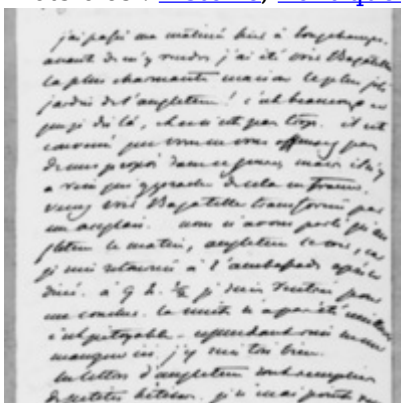 j'ai passé ma matinée hier à Longchamps.
avant de m'y rendre j'ai été voir Bagatelle
la plus charmante maison le plus joli
jardin de l'angleterre! c'est beaucoup
que je dis là, chacun est pas trop. il est
convenu que vous ne vous offensez pas
de mes propos dans ce genre, mais il n'y
a rien qui approche de cela en France.
venez voir Bagatelle transformé par
un anglais. nous n'avons parlé qu'an
gleterre le matin, angleterre le soir, car
je suis retourné à l'ambassade après le
diné. à 9 h. ½ je suis rentrée pour
me coucher. la nuit a
c'est pitoyable. cependant rien ne me
manque ici, j'y suis très bien.
les lettres d'angleterre sont remplies
de petites bêtises. je n'ai point